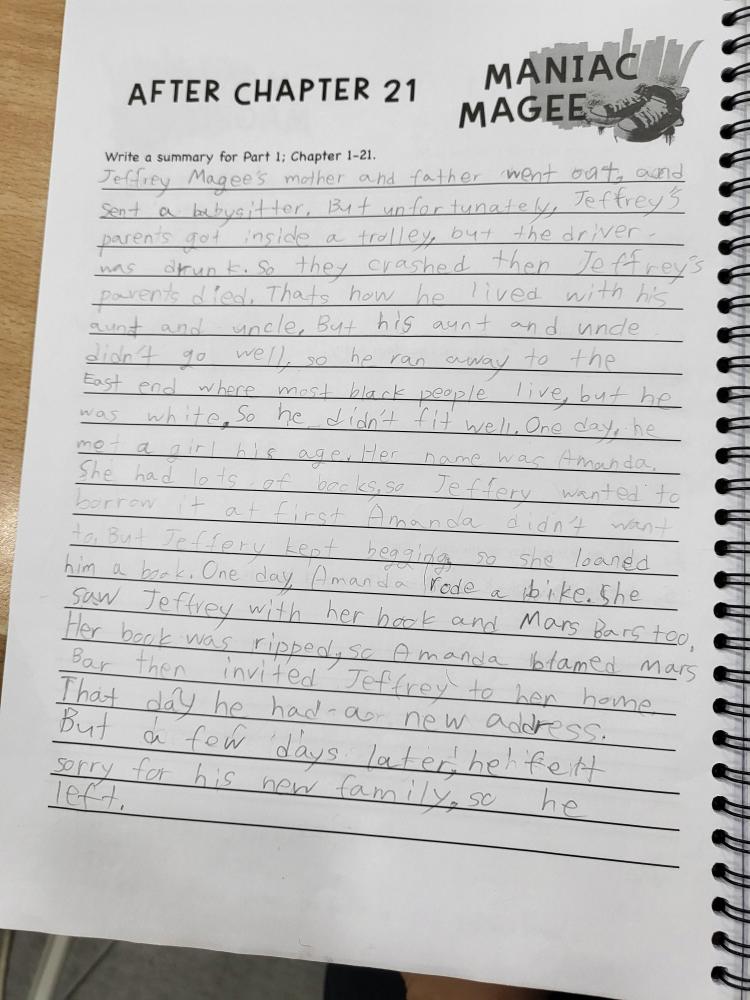 AFTER CHAPTER 21
MANIAC
MAGEE
Write a summary for Part 1; Chapter 1-21.
Jeffrey Magee's mother and father went out, and
sent a babysitter. But unfortunately, Jeffrey's
parents got inside a trolley, but the driver
was drunk. So they crashed then Jeffrey's
parents died. Thats how he lived with his
aunt and uncle. But his aunt and uncle
didn't go well, so he ran away to the
East end where most black people live, but he
was white. So he didn't fit well. One day, he
met a girl his age. Her name was Amanda.
She had lots of books, so Jeffery wanted to
borrow it at first Amanda didn't want
to. But Jeffery kept begging, so she loaned
him a book. One day, Amanda rode a bike. She
saw Jeffrey with her book and Mars Bars too,
Her book was ripped, so Amanda blamed mars
Bar then invited Jeffrey to her home
That day he had a new address.
But a few days later, he felt
sorry for his new family, so he
left.